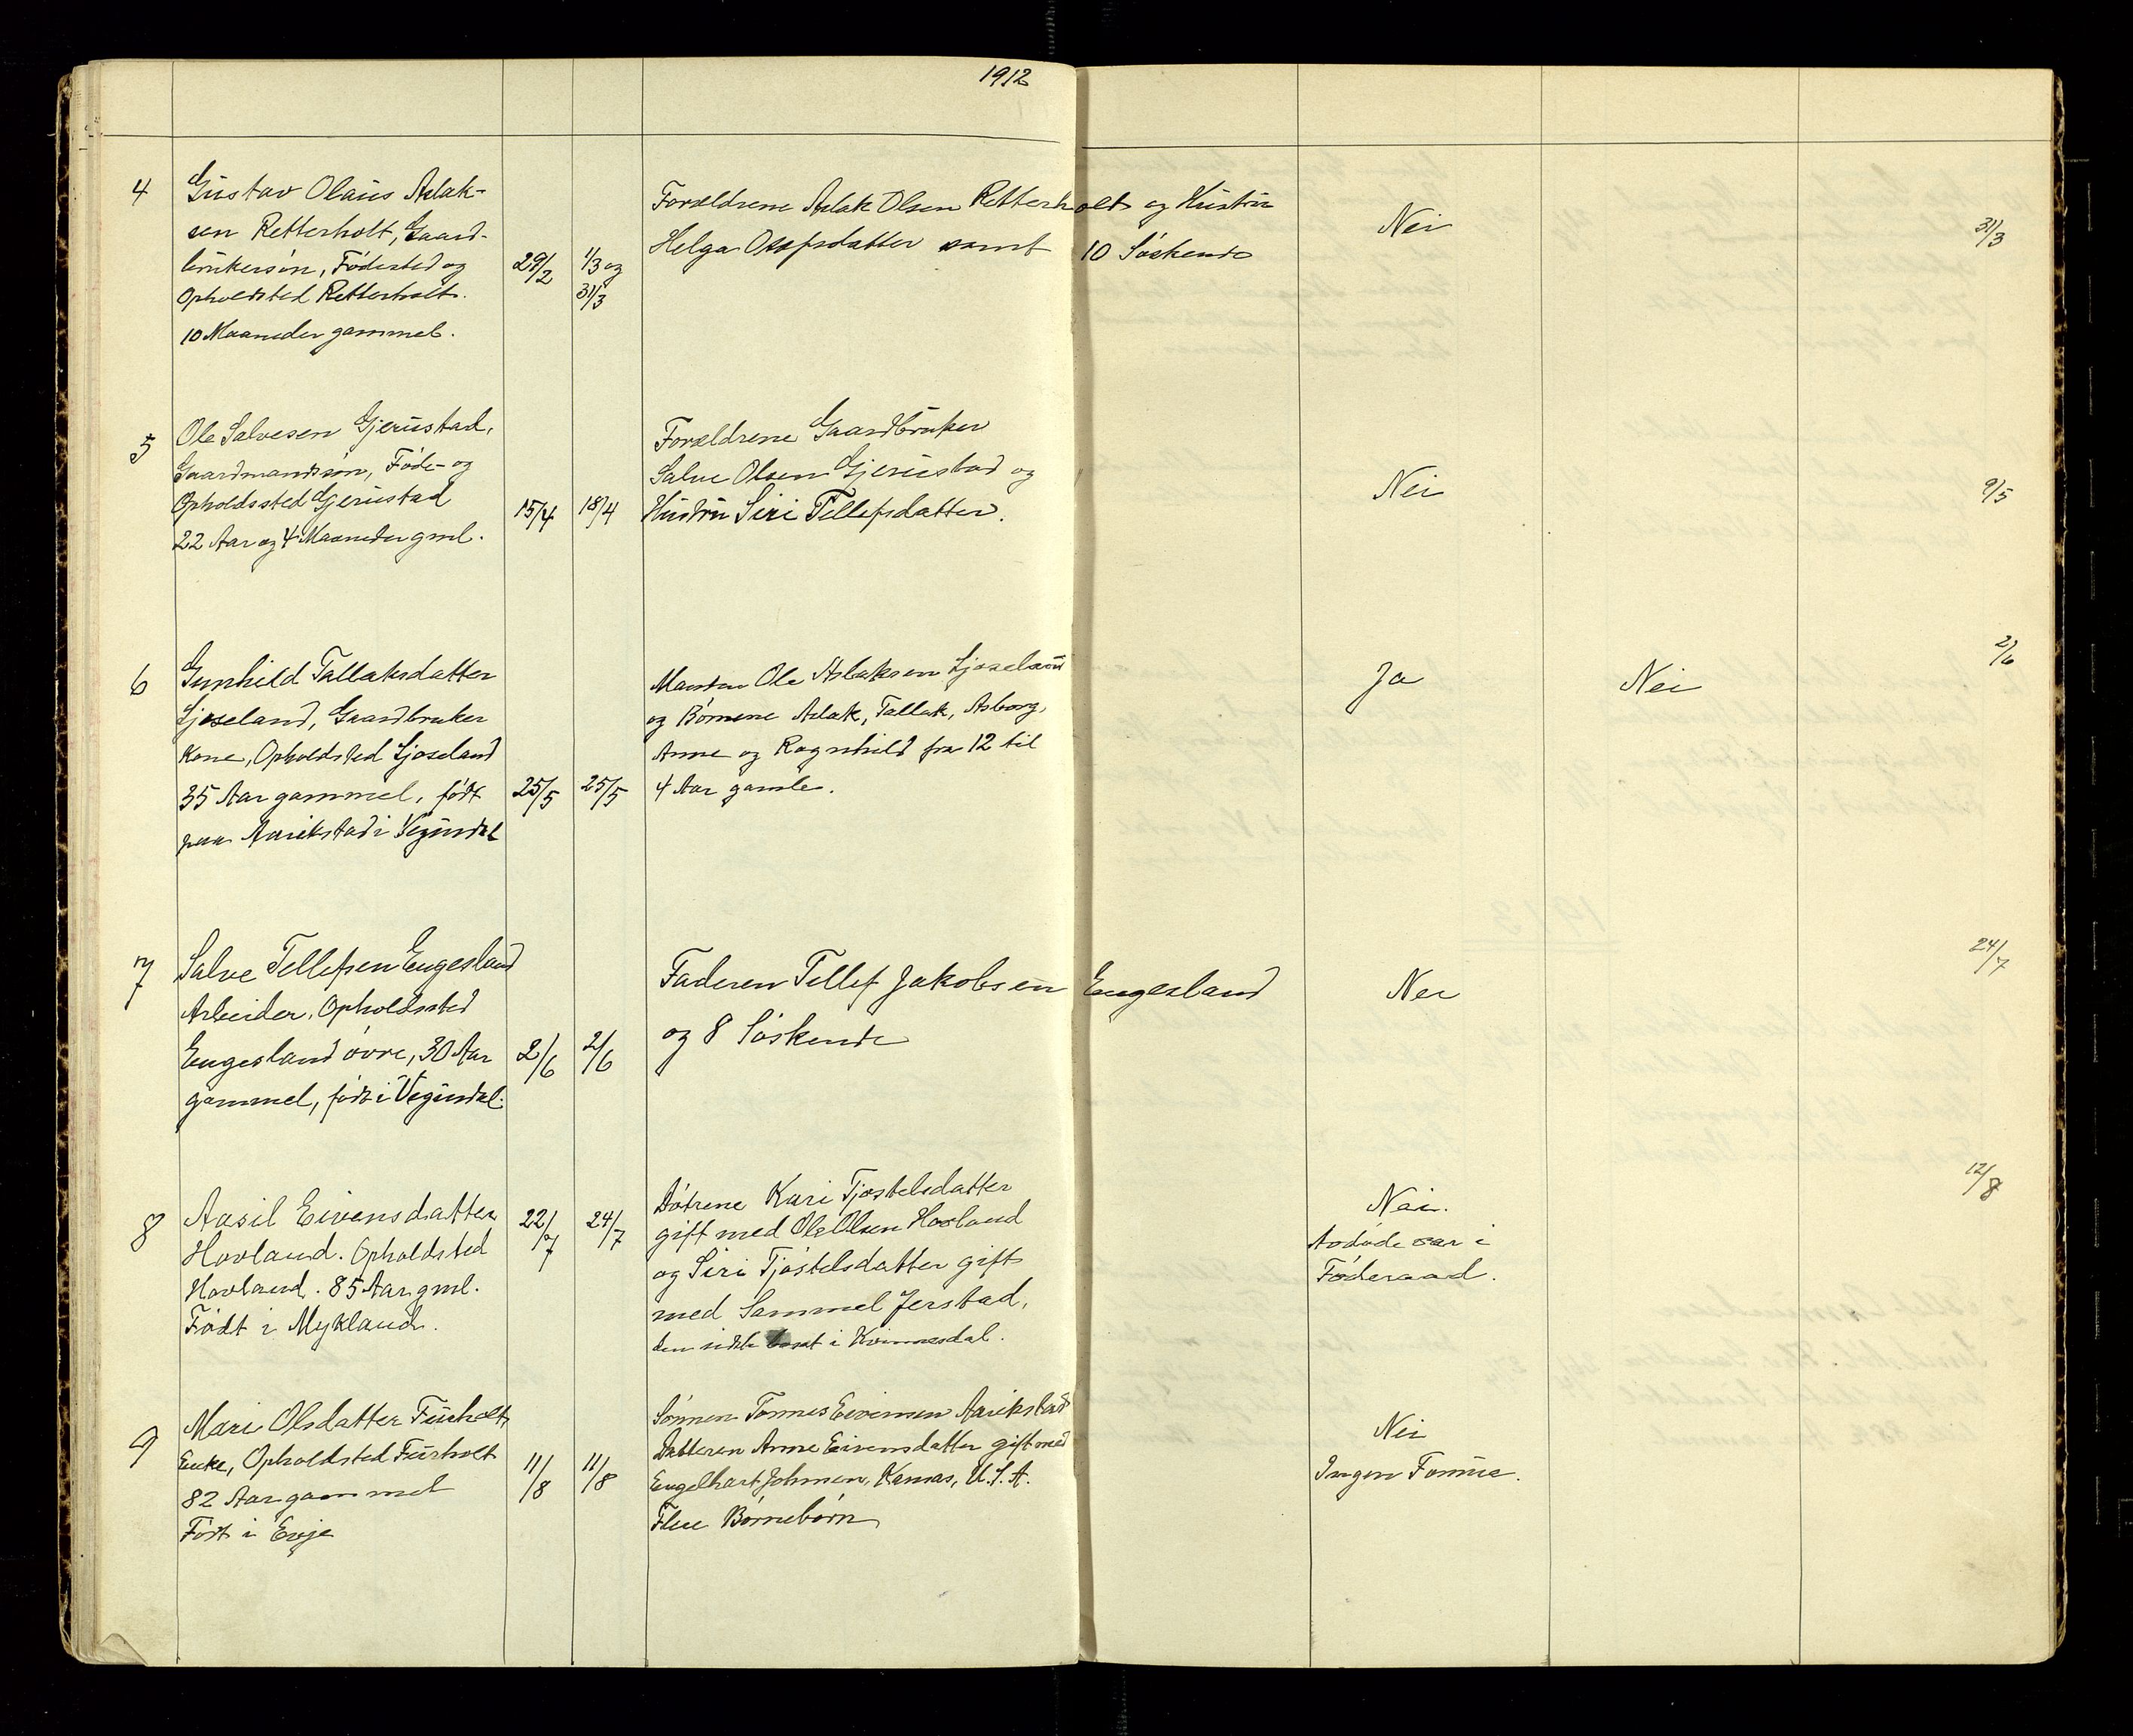 1912
4
Gustav Olaus Aslak-
sen Retterholt, Gaard-
brukersön, Födested og
Opholdsted Retterholt.
10 Maaneder gammel.
29/2
1/3 og
31/3
Forældrene Aslak Olsen Retterholt og Hustru
Helga Osufsdatter samt 10 Söskende
Nei
31/3
5
Ole Salvesen Gjerustad,
Gaardmandsön, Föde- og
Opholdssted Gjerustad
22 Aar og 4 Maaneder gml.
15/4
18/4
Forældrene Gaardbruker
Salve Olsen Gjerustad og
Hustru Siri Tellefsdatter.
Nei
9/5
6
Gunhild Tallaksdatter
Ljoseland, Gaardbruker
Kone, Opholdsted Ljoseland
35 Aar gammel, födt
paa Aarikstad i Vegusdal
25/5
25/5
Manden Ole Aslaksen Ljoseland
og Börnene Aslak, Tallak, Asborg,
Anne og Ragnhild fra 12 til
4 Aar gamle.
Ja
Nei
2/6
7
Salve Tellefsen Engesland
Arbeider, Opholdssted
Engesland övre, 30 Aar
gammel, födt i Vegusdal.
2/6
2/6
Faderen Tellef Jakobsen Engesland
og 8 Söskende
Nei
24/7
8
Aasil Eivensdatter
Hovland. Opholdsted
Hovland. 85 Aar gml.
Födt i Mykland.
22/7
24/7
Dötrene Kari Tjostelsdatter
gift med Ole Olsen Hovland
og Siri Tjöstelsdatter gift
med Sammel Jerstad,
den sidste bosat i Kvinnesdal.
Nei.
Avdöde var i
Föderaad.
12/8
9
Mari Olsdatter Furholt
Enke, Opholdsted Furholt
82 Aar gammel
Födt i Evje
11/8
11/8
Sönnen Tönnes Eivensen Aarikstad
Datteren Anne Eivensdatter gift med
Engelhart Johnsen, Kansas, U.S.A.
Flere Börnebörn
Nei
Ingen Formue.